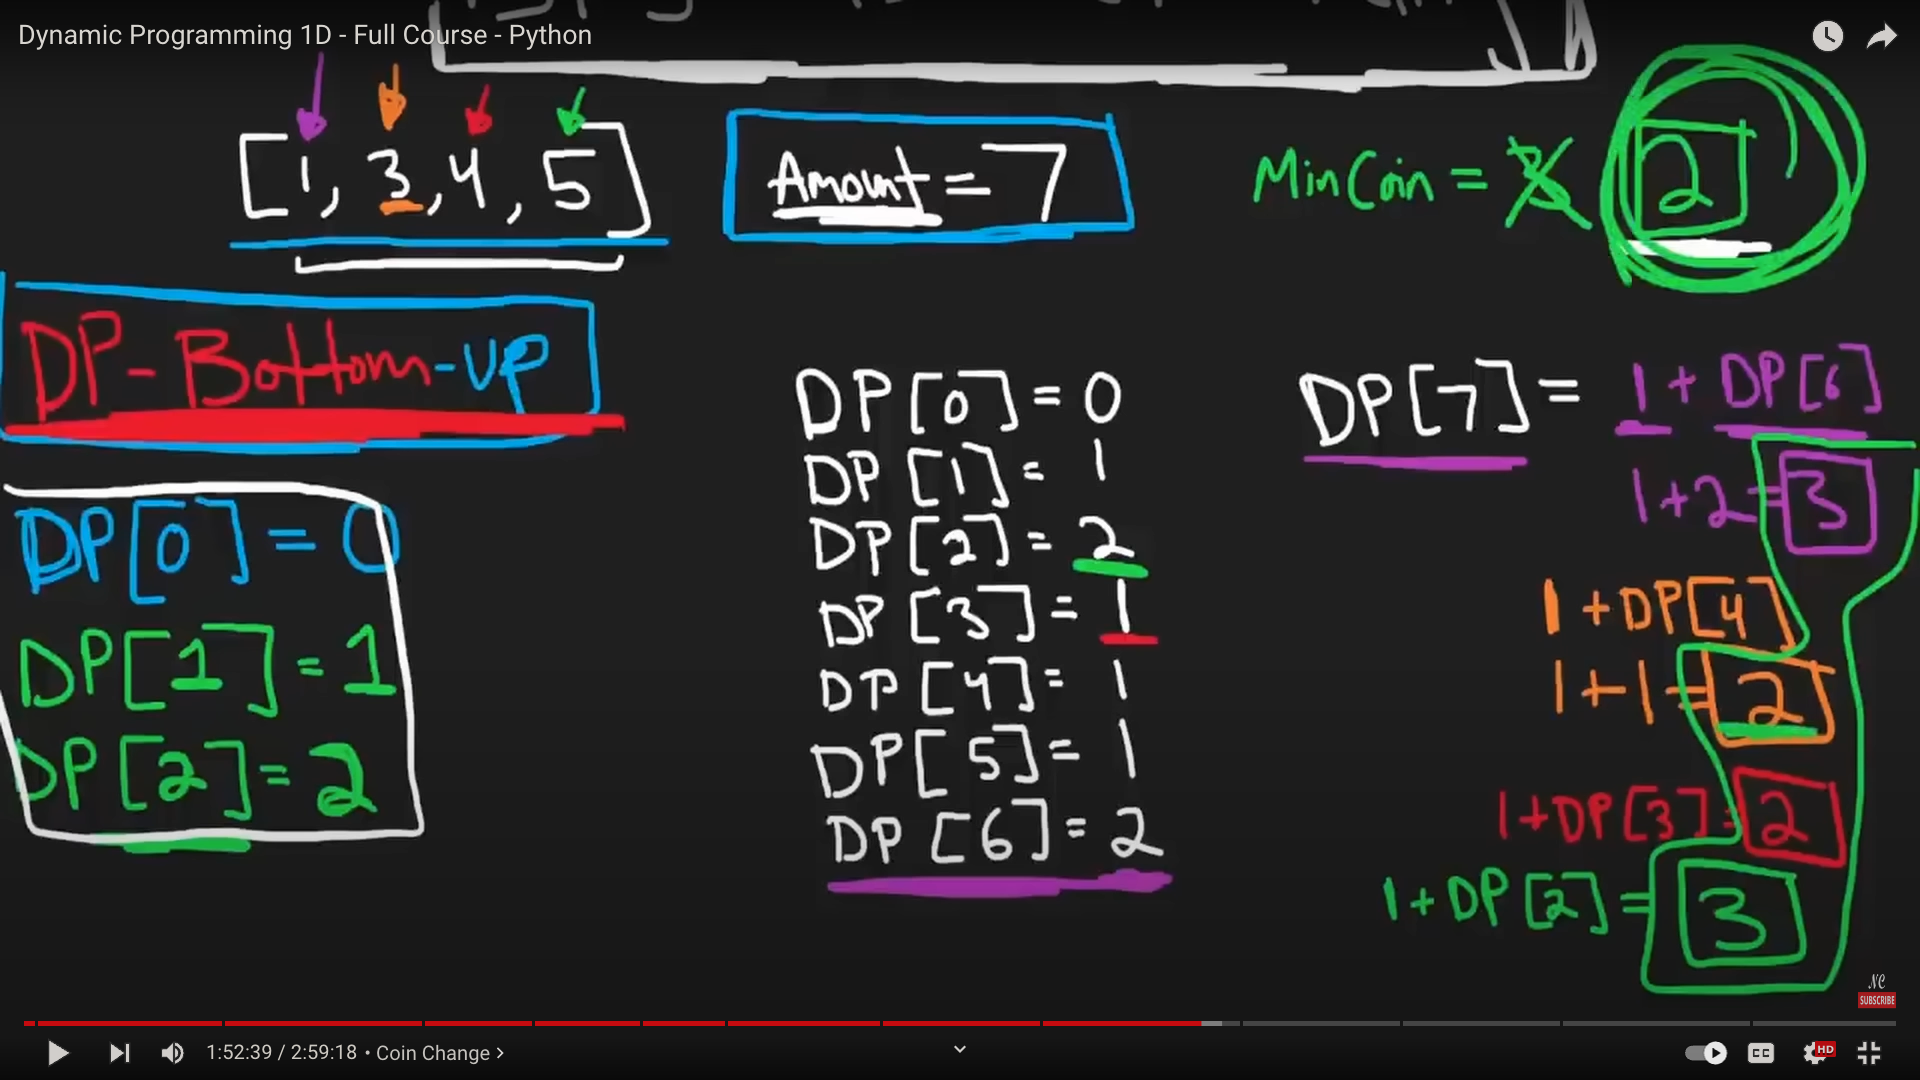 Dynamic Programming 1D - Full Course - Python
[1, 3, 4, 5]
Amount = 7
MinCoin = 3 2
DP-Bottom-UP
DP[0] = 0
DP[1] = 1
DP[2] = 2
DP[0] = 0
DP[1] = 1
DP[2] = 2
DP[3] = 1
DP[4] = 1
DP[5] = 1
DP[6] = 2
DP[7] = 1 + DP[6]
1+2=3
1+DP[4]
1+1=2
1+DP[3]=2
1+DP[2]=3
NC
SUBSCRIBE
1:52:39 / 2:59:18 • Coin Change >
CC
HD